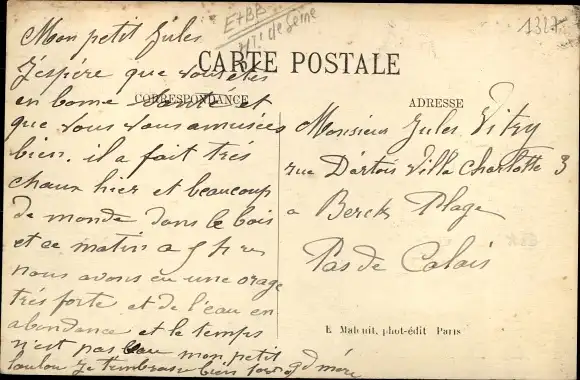 1327
E7BB
Mon petit Jules
CARTE POSTALE
J'espère que vous êtes
en bonne santé et
CORRESPONDANCE
que vous vous amusées
bien. il a fait trés
chaux hier et beaucoup
de monde dans le bois
et ce matin a 5 h
nous avons eu une orage
trés forte et de l'eau en
abondance et le temps
n'est pas mon petit
loulou Je t'embrasse bien fort gd mère
ADRESSE
Monsieur Jules Vitry
rue D'artois Villa Charlotte 3
a Berck Plage
Pas de Calais
E Mabuit, phot-édit Paris